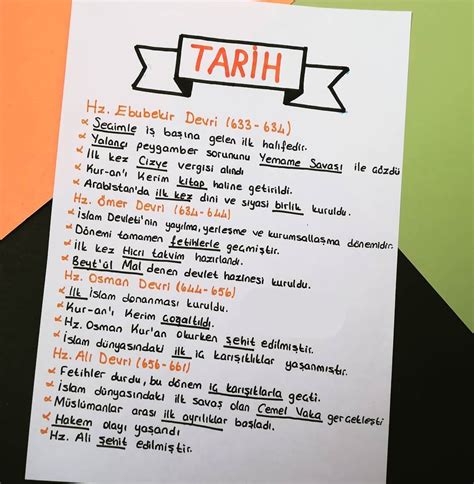 TARİH
Hz. Ebubekir Devri (633-634)
Seçimle iş başına gelen ilk halifedir.
Yalancı peygamber sorununu Yemame Savaşı ile çözdü
İlk kez Cizye vergisi alındı
Kur-an'ı Kerim kitap haline getirildi.
Arabistan'da ilk kez dini ve siyasi birlik kuruldu.
Hz. Ömer Devri (634-644)
İslam Devleti'nin yayılma, yerleşme ve kurumsallaşma dönemidir.
Dönemi tamamen fetihlerle geçmiştir.
İlk kez Hicri takvim hazırlandı.
Beyt'ül Mal denen devlet hazinesi kuruldu.
Hz. Osman Devri (644-656)
İlk İslam donanması kuruldu.
Kur-an'ı Kerim çoğaltıldı.
Hz. Osman Kur'an okurken şehit edilmiştir.
İslam dünyasındaki ilk iç karışıklıklar yaşanmıştır.
Hz. Ali Devri (656-661)
Fetihler durdu, bu dönem iç karışıklarla geçti.
İslam dünyasındaki ilk savaş olan Cemel Vaka gerçekleşti
Müslümanlar arası ilk ayrılıklar başladı.
Hakem olayı yaşandı
Hz. Ali şehit edilmiştir.